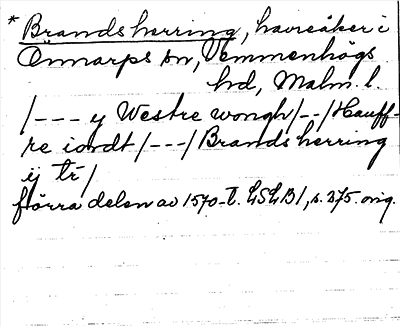 * Brandsherring, havreåker i
Önnarps sn, Vemmenhögs
hd, Malm. l.
/--- y Westre wongh/--/Hauff-
re iordt/---/Brandsherring
ij tr̃/
förra delen av 1570-t. LSLB1, s. 375. orig.